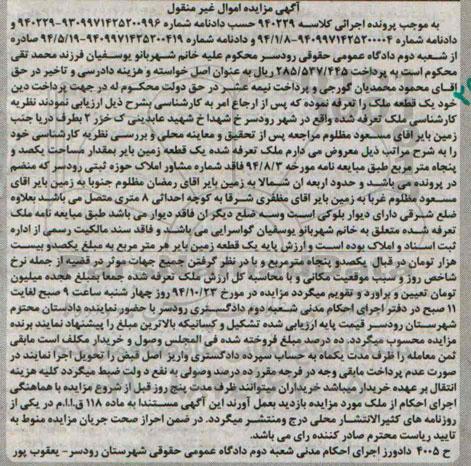 آگهی مزایده اموال غیر منقول
به موجب پرونده اجرائی کلاسه ۹۴۰۲۲۹ حسب دادنامه شماره ۹۳۰۹۹۷۱۴۲۵۲۰۰۹۹۶-۹۴۰۲۲۹ و
دادنامه شماره ۹۴۰۹۹۷۱۴۲۵۲۰۰۰۰۴-۹۴/۱/۸ و دادنامه شماره ۹۴۰۹۹۷۱۴۲۵۲۰۰۴۱۹-۹۴/۵/۱۹ صادره
از شعبه دوم دادگاه عمومی حقوقی رودسر محکوم علیه خانم شهربانو یوسفیان فرزند محمد تقی
محکوم است به پرداخت ۲۸۵/۵۳۷/۴۴۵ ریال به عنوان اصل خواسته و هزینه دادرسی و تاخیر در حق
آقای محمود محمدیان گورجی و پرداخت نیمه عشر در حق دولت محکوم له در جهت پرداخت دین
خود یک قطعه ملک را تعرفه نموده که پس از ارجاع امر به کارشناسی بشرح ذیل ارزیابی نمودند نظریه
کارشناسی ملک تعرفه شده واقع در شهر رودسر خ شهداء خ شهید عابدینی ک خزر ۲ بطرف دریا جنب
زمین بایر اقای مسعود مظلوم مراجعه پس از تحقیق و معاینه محلی و بررسی نظریه کارشناسی خود
را به شرح مراتب ذیل معروض می دارم ملک تعرفه شده یک قطعه زمین بایر بمقدار مساحت یکصد و
پنجاه متر مربع طبق مبایعه نامه مورخه ۹۴/۸/۳ فاقد شماره مشاور املاک حوزه ثبتی رودسر که منضم
در پرونده می باشد و حدود اربعه ان شمالا به زمین بایر اقای رمضان مظلوم جنوبا به زمین بایر اقای
مسعود مظلوم غربا به زمین بایر اقای مظفری شرقا به کوچه احداثی ۸ متری متصل می باشد بعلاوه
ضلع شرقی دارای دیوار بلوکی است وسه ضلع دیگر ان فاقد دیوار می باشد طبق مبایعه نامه ملک
تعرفه شده متعلق به خانم شهربانو یوسفیان گواسرایی می باشد و فاقد سند مالکیت رسمی از اداره
ثبت اسناد و املاک بوده است و ارزش پایه یک قطعه زمین بایر هر متر مربع به مبلغ یکصدو بیست
هزار تومان در قبال یکصدو پنجاه مترمربع و با در نظر گرفتن جمیع جهات موثر در قضیه از جمله نرخ
شاخص روز و سبب موقعیت مکانی و با محاسبه کل ارزش ملک تعرفه شده جمعا مبلغ هجده میلیون
تومان تعیین و براورد و تقویم میگردد مزایده در مورخ ۹۴/۱۰/۲۳ روز چهار شنبه ساعت ۹ صبح لغایت
۱۱ صبح در دفتر اجرای احکام مدنی شعبه دوم دادگستری رودسر با حضور نماینده دادستان محترم
شهرستان رودسر قیمت پایه ارزیابی شده تشکیل و کسانیکه بالاترین مبلغ را پیشنهاد نمایند برنده
مزایده محسوب میگردد. ده درصد مبلغ فروخته شده فی المجلس وصول و خریدار مکلف است مابقی
ثمن معامله را ظرف مدت یکماه به حساب سپرده دادگستری واریز اصل قبض را تحویل اجرا نمایند در
صورت عدم پرداخت مابقی وجه در فرجه مقرر ده درصد وصولی به نفع د ولت ضبط میگردد کلیه هزینه
انتقال بر عهده خریدار میباشد خریداران میتوانند ظرف مدت پنج روز قبل از شروع مزایده با هماهنگی
اجرای احکام از ملک مورد مزایده بازدید بعمل آورند این آگهی مستندا به ماده ۱۱۸ ق.ا.ا.م در یکی از
روزنامه های کثیرالانتشار محلی درج ومنتشر میگردد. در ضمن احراز صحت جریان مزایده منوط به
تایید ریاست محترم صادر کننده رای می باشد.
ح ۴۰۰۵ دادورز اجرای احکام مدنی شعبه دوم دادگاه عمومی حقوقی شهرستان رودسر- یعقوب پور